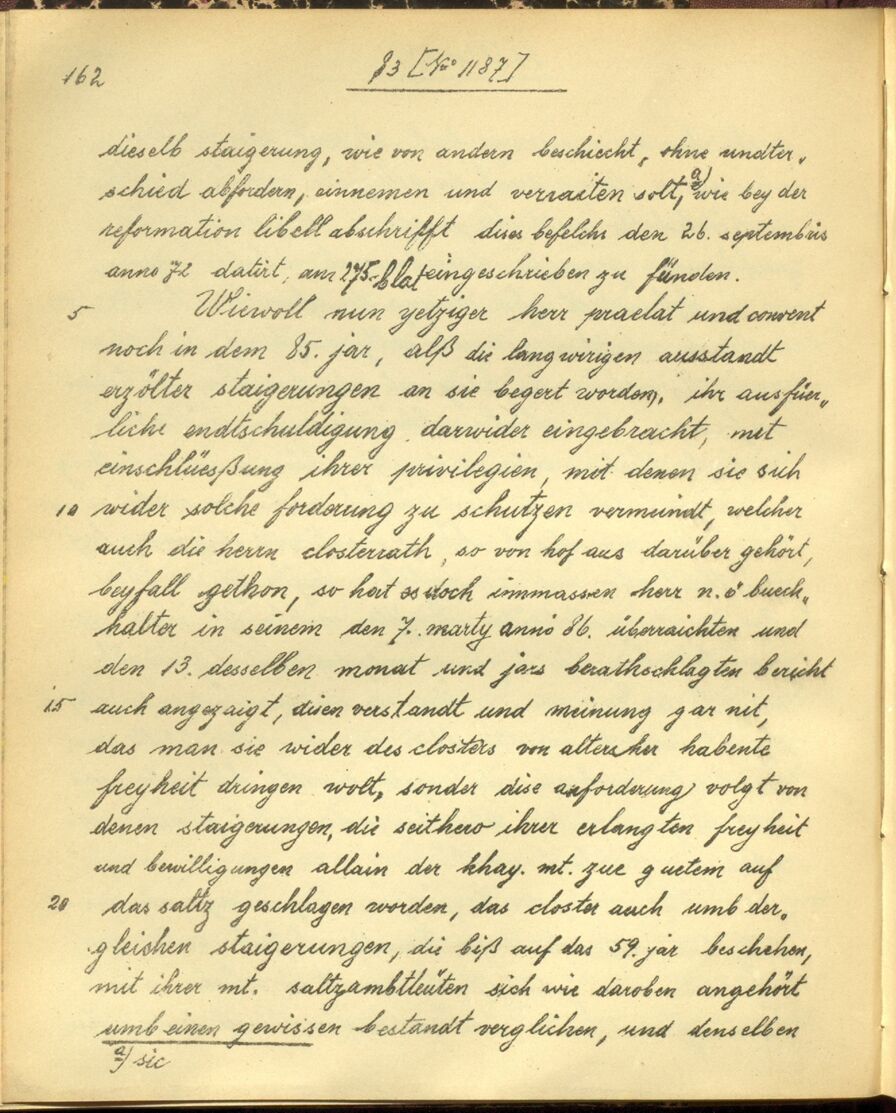 162
§3 [Nº 1187]
dieselb staigerung, wie von andern beschiecht, ohne undter„
schied abfordern, einnemen und verraiten solt, a) wie bey der
reformation libell abschrifft dises befelchs den 26. septembris
anno 72 datirt, am 275. blat eingeschrieben zu fünden.
5 Wiewoll nun yetziger herr praelat und convent
noch in dem 85. jar, alß die langwirigen ausstandt
erzölter staigerungen an sie begert worden, ihr ausfüer„
liche endtschuldigung darwider eingebracht, mit
einschlüesßung ihrer privilegien, mit denen sie sich
10 wider solche forderung zu schutzen vermeindt, welcher
auch die herrn closterrath, so von hof aus darüber gehört,
beyfall gethon, so hat es doch inmassen herr n. ö buech„
halter in seinem den 7. marty anno 86. überraichten und
den 13. desselben monat und jars berathschlagten bericht
15 auch angezaigt, disen verstandt und meinung gar nit,
das man sie wider des closters von alters her habente
freyheit dringen wolt, sonder dise anforderung volgt von
denen staigerungen, die seithero ihrer erlangten freyheit
und bewilligungen allain der khay. mt. zue guetem auf
20 das saltz geschlagen worden, das closter auch umb der„
gleichen staigerungen, die biß auf das 59. jar beschehen,
mit ihrer mt. saltzambtleüten sich wie daroben angehört
umb einen gewissen bestandt verglichen, und denselben
a) sic